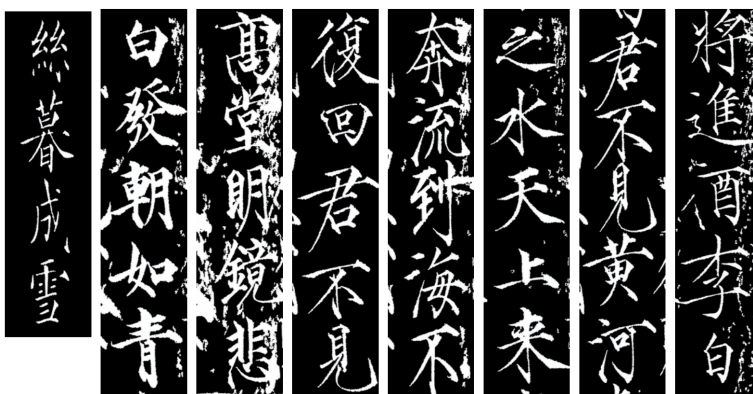 將進酒李白
君不見黄河
之水天上来
奔流到海不
復回君不見
高堂明鏡悲
白發朝如青
絲暮成雪